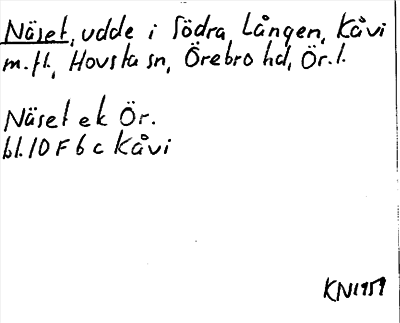 Näset, udde i Södra Lången, Kåvi
m.fl., Hovsta sn, Örebro hd, Ör.l.
Näset ek Ör.
bl. 10 F 6 c Kåvi